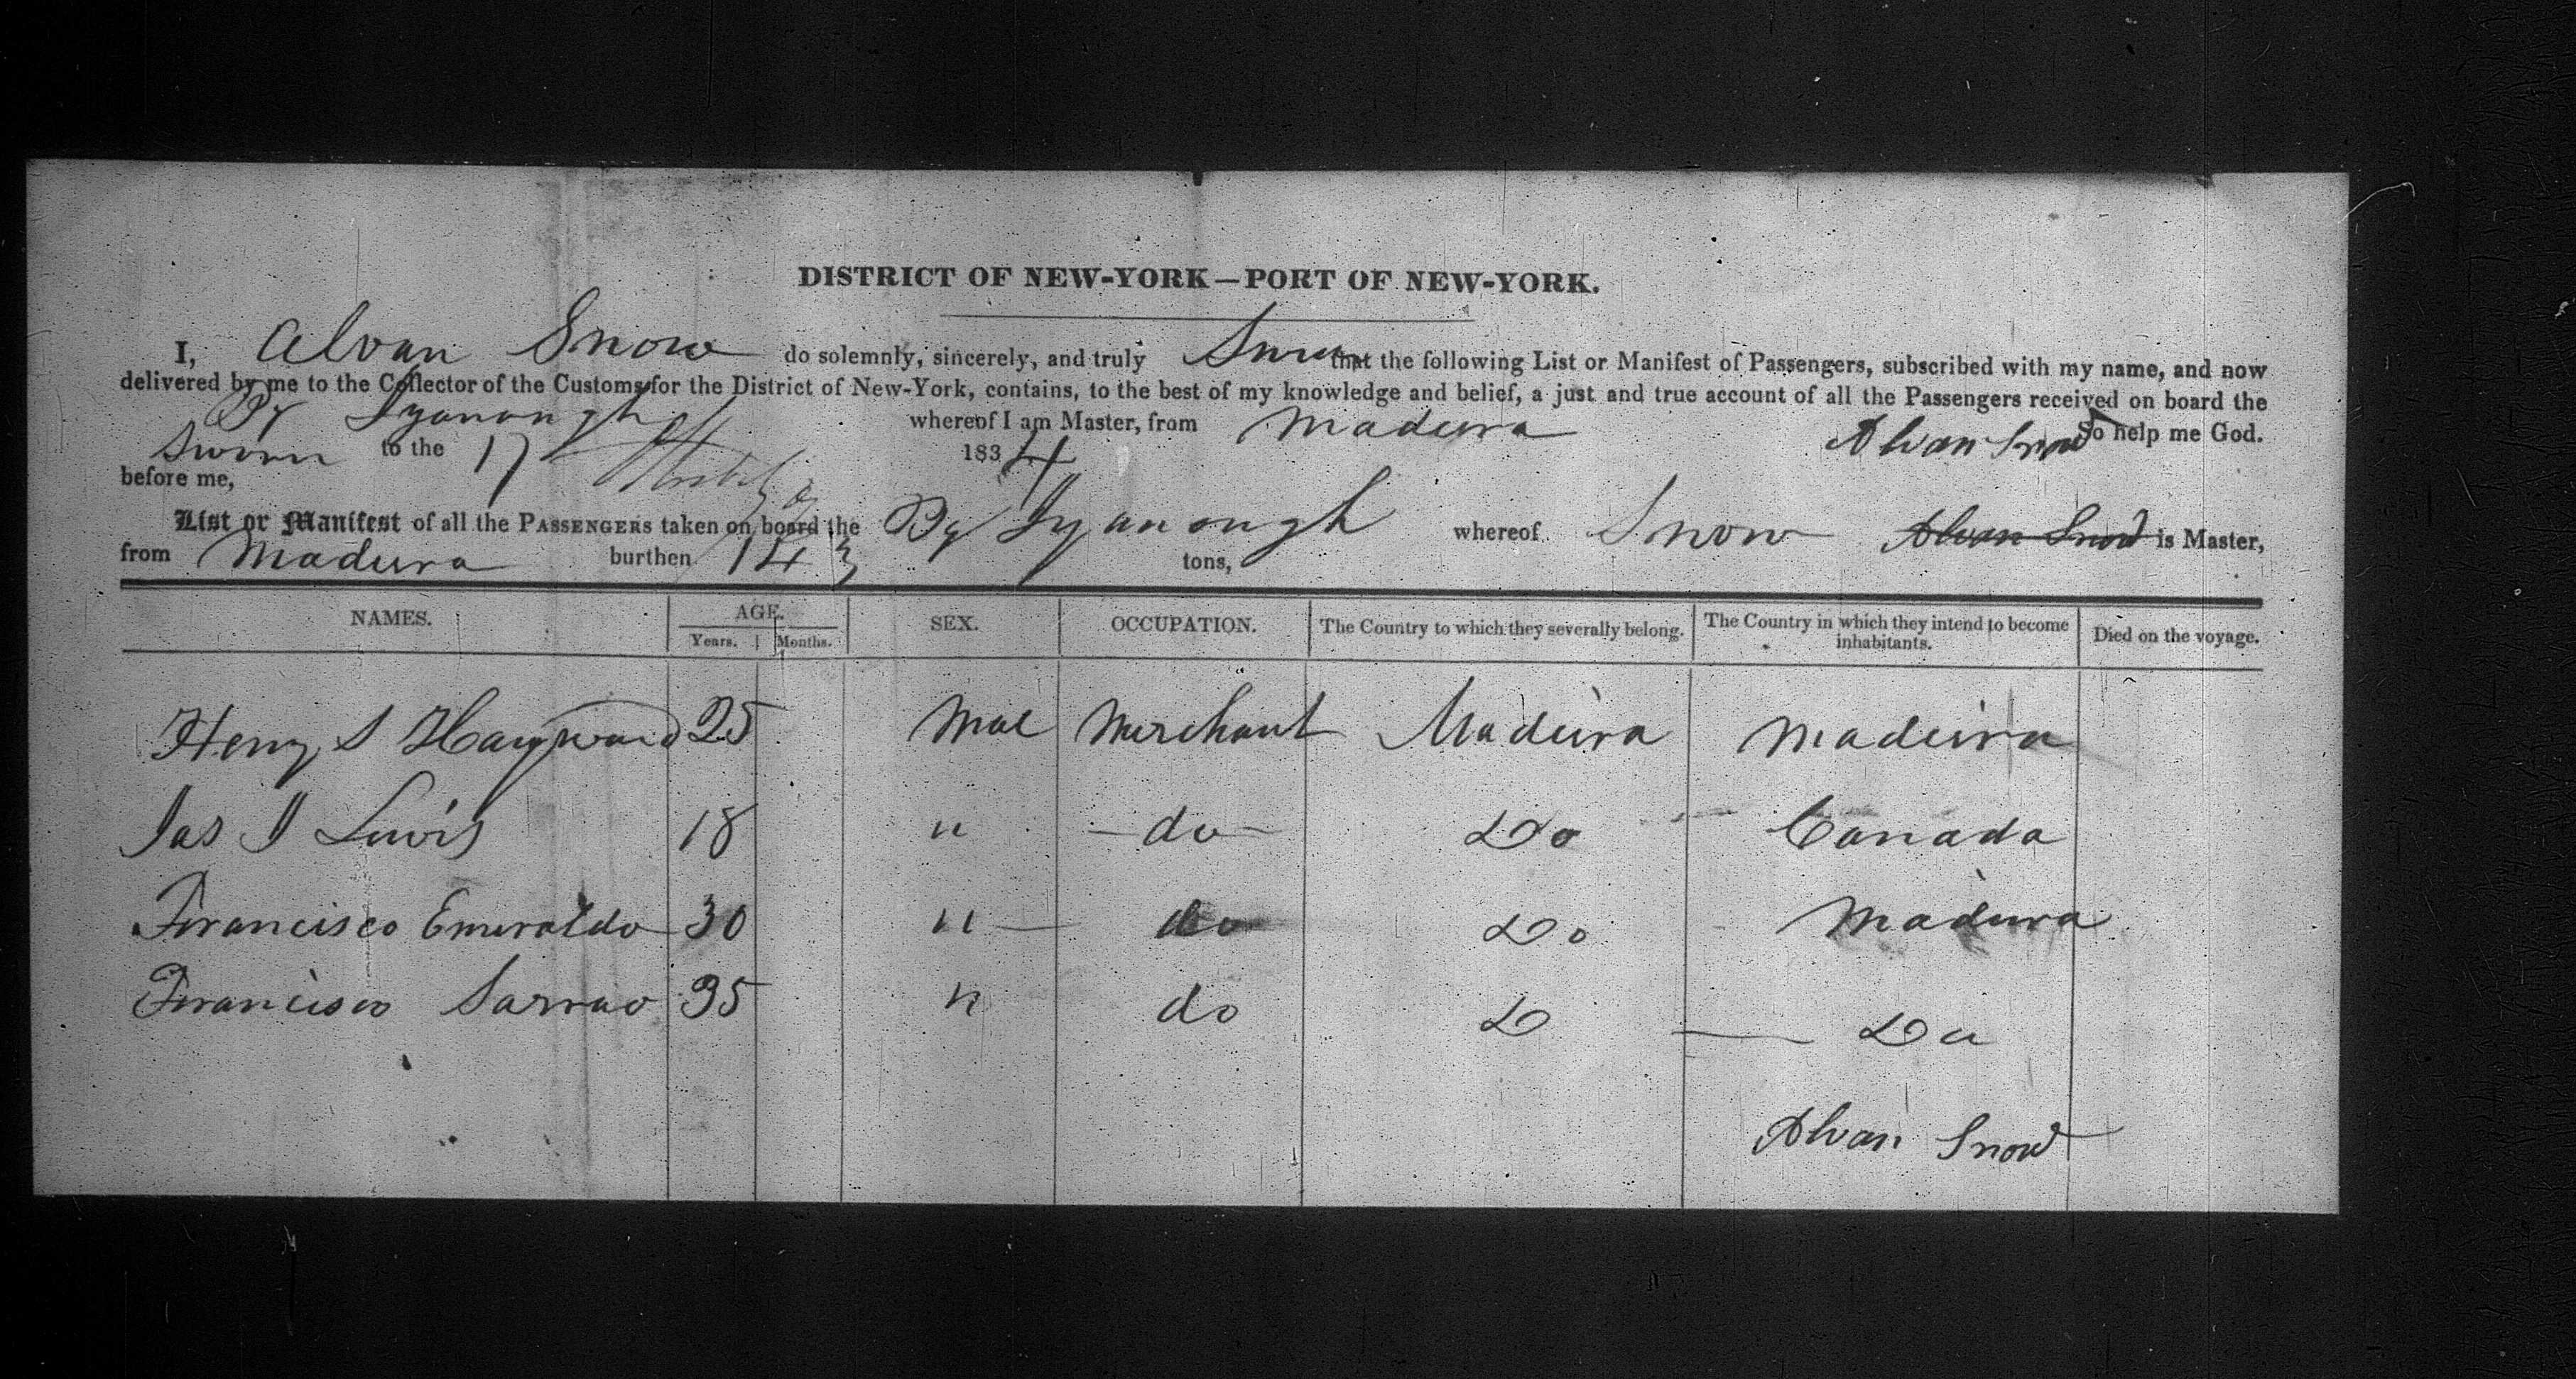 DISTRICT OF NEW-YORK—PORT OF NEW-YORK.
I, Alvan Snow do solemnly, sincerely, and truly Swear that the following List or Manifest of Passengers, subscribed with my name, and now
delivered by me to the Collector of the Customs for the District of New-York, contains, to the best of my knowledge and belief, a just and true account of all the Passengers received on board the
Bg Iyanough whereof I am Master, from Madeira So help me God.
Sworn to the 17 1834 Alvan Snow
before me,
List or Manifest of all the PASSENGERS taken on board the Bg Iyanough whereof Snow Alvan Snow is Master,
from Madeira burthen 143 tons,
NAMES. AGE. SEX. OCCUPATION. The Country to which they severally belong. The Country in which they intend to become inhabitants. Died on the voyage.
Years. Months.
Henry S Hayward 25 Mal Merchant Madeira Madeira
Jas J Lewis 18 " do Do Canada
Francisco Emeraldo 30 " do Do Madeira
Francisco Sarrao 35 " do D Do
Alvan Snow